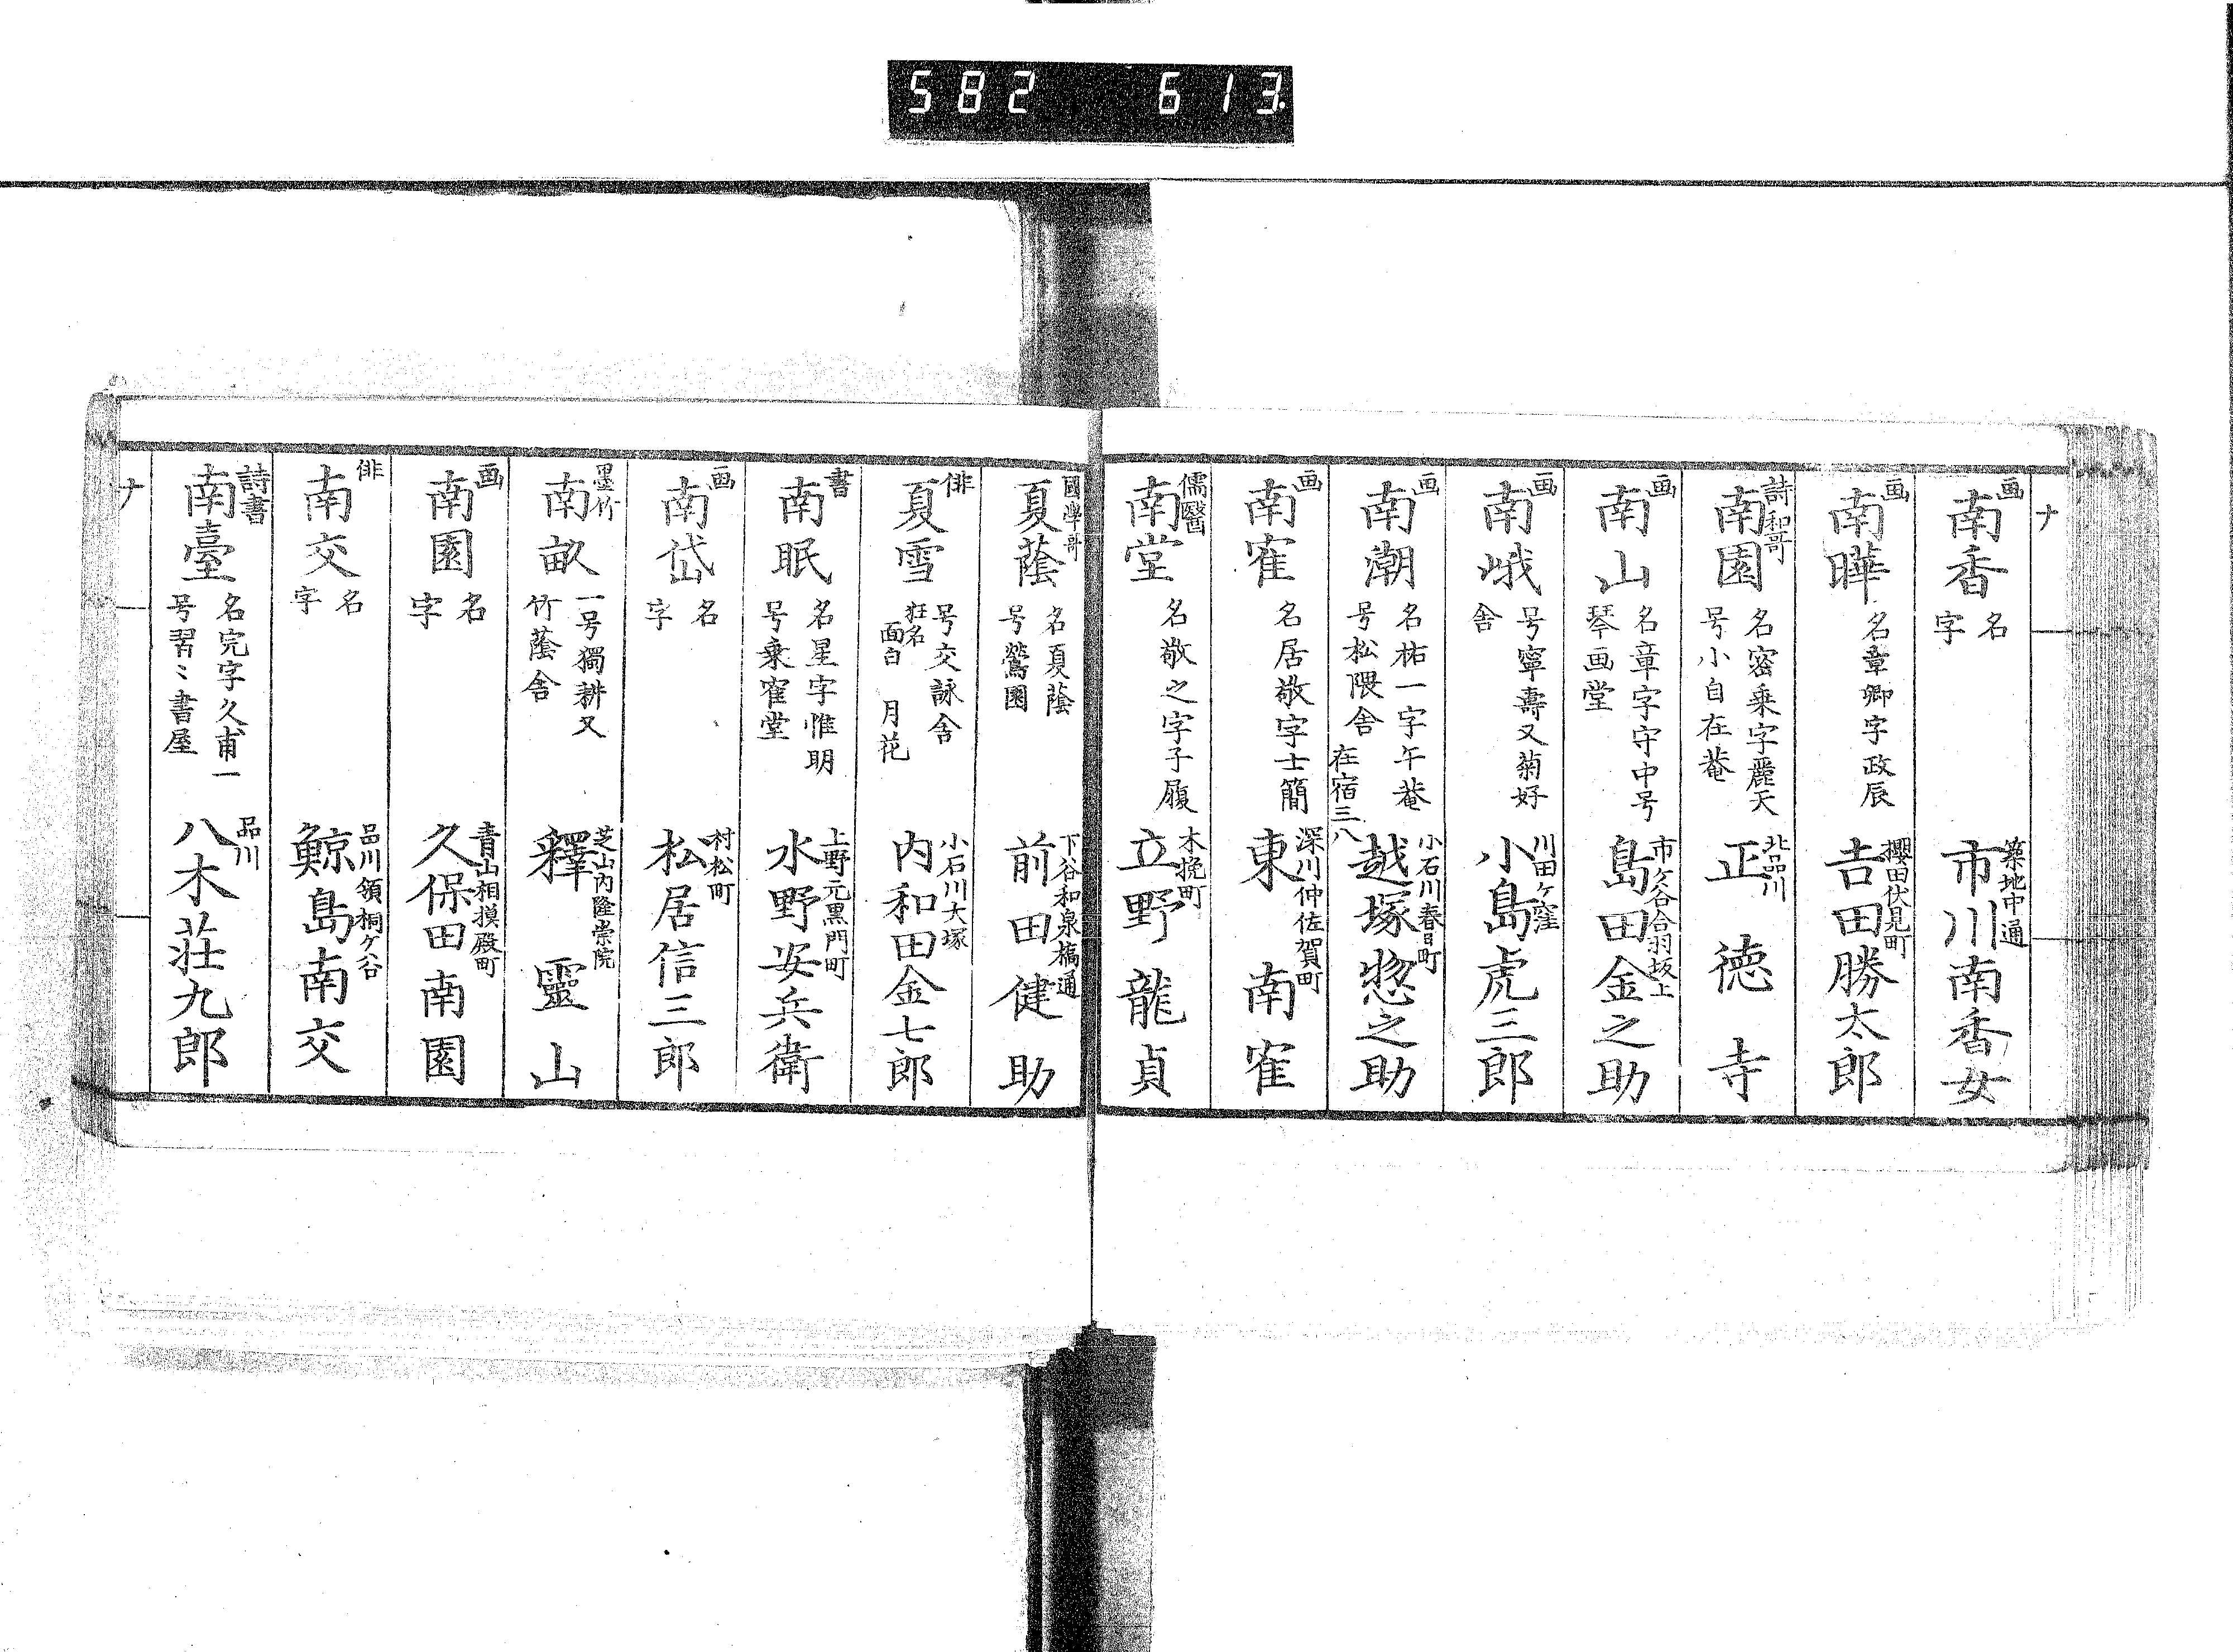 582 613
ナ
画
南香
名
字
築地中通
市川南香女
画
南曄
名章卿字政辰
櫻田伏見町
吉田勝太郎
詩和哥
南園
名密乗字麗天
号小自在菴
北品川
正徳寺
画
南山
名章字守中号
琴画堂
市ケ谷合羽坂上
島田金之助
画
南峨
号寧壽又菊好
舎
川田ケ窪
小島虎三郎
画
南潮
名祐一字午菴
号松隈舎
在宿三八
小石川春日町
越塚惣之助
画
南寉
名居敬字士簡
深川仲佐賀町
東南寉
儒醫
南堂
名敬之字子履
木挽町
立野龍貞
國學哥
夏蔭
名夏蔭
号鶯園
下谷和泉橋通
前田健助
俳
夏雪
号交詠舎
狂名
面白
月花
小石川大塚
内和田金七郎
書
南眠
名星字惟明
号乗寉堂
上野元黒門町
水野安兵衛
画
南岱
名
字
村松町
松居信三郎
墨竹
南畝
一号獨耕又
竹蔭舎
芝山内隆崇院
釋靈山
画
南園
名
字
青山相摸殿町
久保田南園
俳
南交
名
字
品川領桐ケ谷
鯨島南交
詩書
南臺
名完字久甫一
号習〻書屋
品川
八木荘九郎
ナ